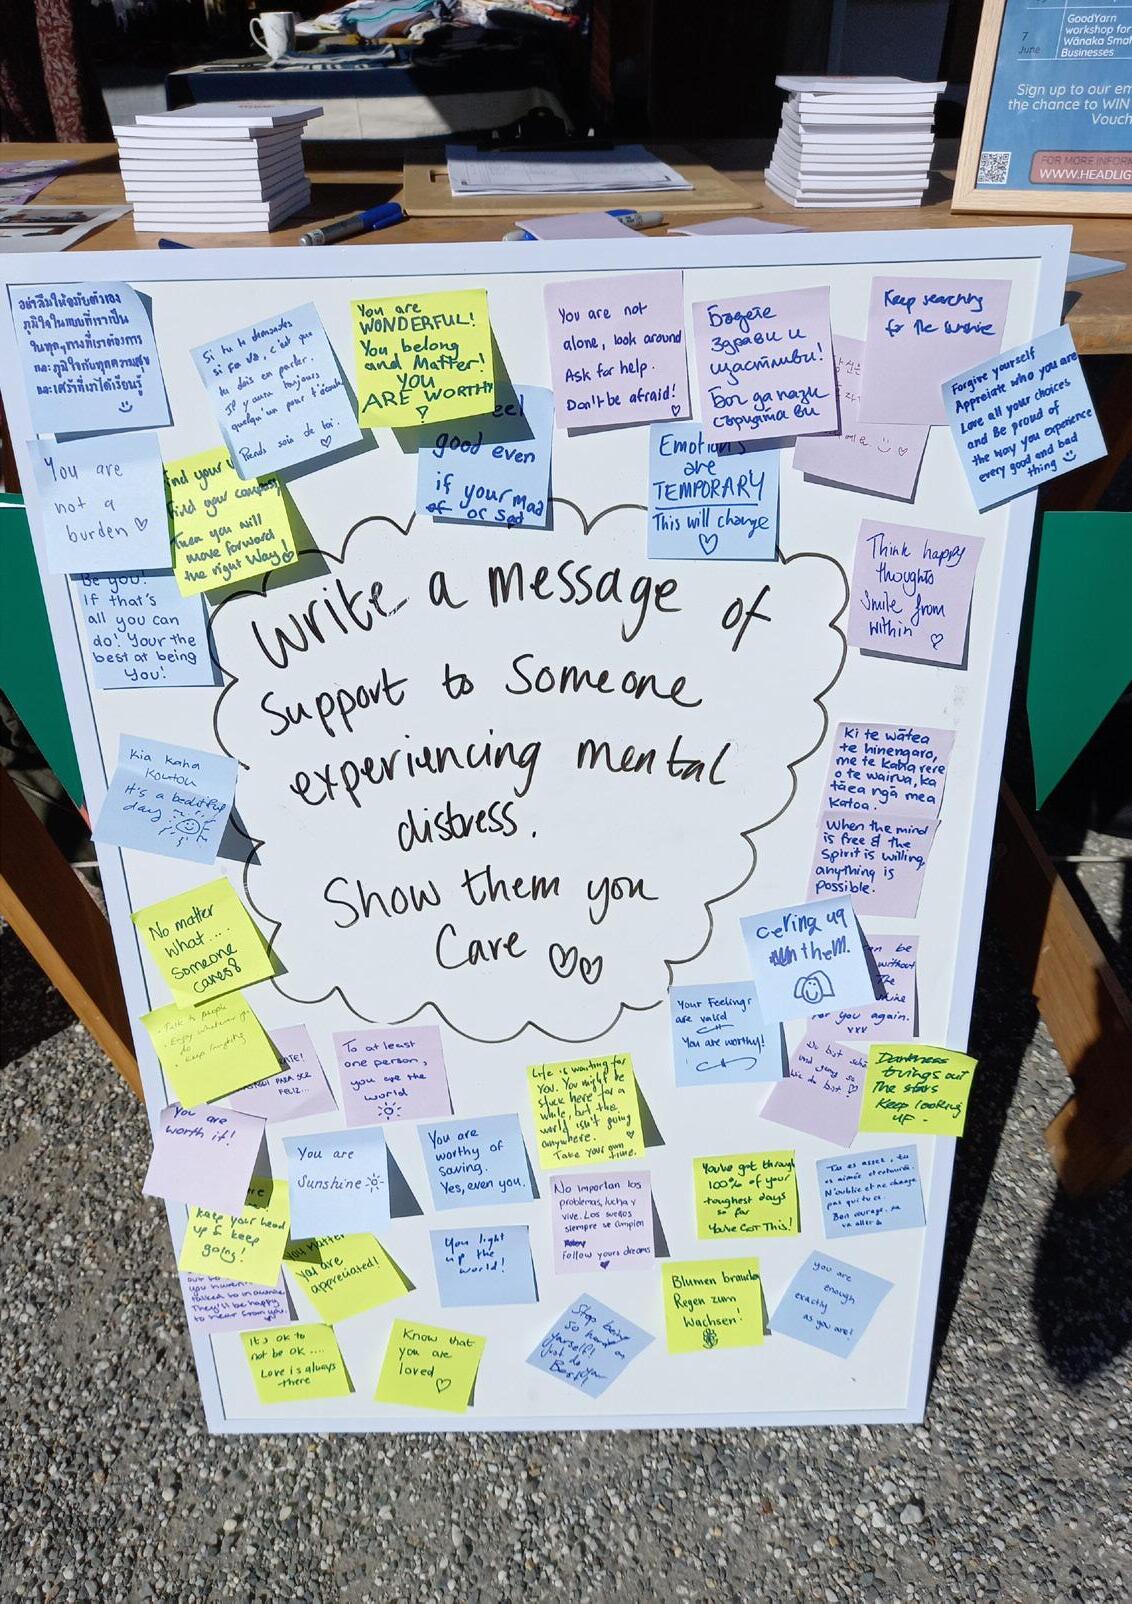 7
June
GoodYarn
workshop for
Wānaka
Businesses
Sign up to our
the chance to WIN
FOR MORE
WWW.
อย่าลืมให้อภัยตัวเอง
ภูมิใจในแบบที่เราเป็น
ในทุกๆทางที่เราต้องการ
และภูมิใจกับทุกความสุข
และเศร้าที่เราได้เรียนรู้
Si tu te demandes
si ça va, c'est que
tu dois en parler.
Il y aura toujours
quelqu'un pour
Prends soin de toi. ♡
You are
WONDERFUL!
You belong
and Matter!
YOU
ARE WORTHY
!
You are not
alone, look around
Ask for help.
Don't be afraid!
♡
Бъдете
Здрави и
щастливи!
Бог да пази
сърцата ви
Keep searching
for the sunshine
Forgive yourself
Appreiate who you are
Love all your choices
and Be proud of
the way you experience
every good and bad
thing
You are
not a
burden ♡
find your
find your compass
Then you will
move forward
the right Way!
good even
if your mad
or sad
Emotions
are
TEMPORARY
This will change
♡
Be you!
If that's
all you can
do! Your the
best at being
You!
Think happy
thoughts
smile from
within ♡
Write a message of
support to someone
experiencing mental
distress.
Show them you
Care ♡♡
Kia kaha
koutou
It's a beautiful
day
Ki te wātea
te hinengaro,
me te kaha rere
o te wairua, ka
tāea ngā mea
katoa.
When the mind
is free & the
Spirit is willing,
anything is
possible.
No matter
what....
someone
cares
them.
be
without
The
for you again.
xxx
Talk to people
Enjoy
do
Keep laughing
PARA SER
FELIZ...
To at least
one person,
you are the
world
Life is waiting for
you. You might be
stuck here for a
while, but the
world isn't going
anywhere.
Take your own
time.
Your Feelings
are valid
You are worthy!
Du bist schön
und
wie du bist
Darkness
brings out
The stars
Keep looking
UP.
You are
worth it!
You are
Sunshine
You are
worthy of
saving.
Yes, even you.
No importan los
problemas, lucha y
vive. Los sueños
siempre se cumplen
Follow yours dreams
You've got through
100% of your
toughest days
so far
You've Got This!
Tu es assez, tu
es aimée et entourée.
N'oublie et ne change
pas qui tu es.
Bon courage, ça
va aller
Keep your head
up & keep
going!
you haven't
talked to in awhile
They'll be happy
to hear from you.
You matter
you are
appreciated!
You light
up the
world!
Blumen brauchen
Regen zum
Wachsen!
you are
enough
exactly
as you are!
It's ok to
not be ok....
Love is always
there
Know that
you are
loved
♡
Stop being
so hard on
yourself!
Just do your
Best!